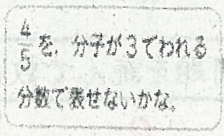 4/5を、分子が3でわれる
分数で表せないかな。